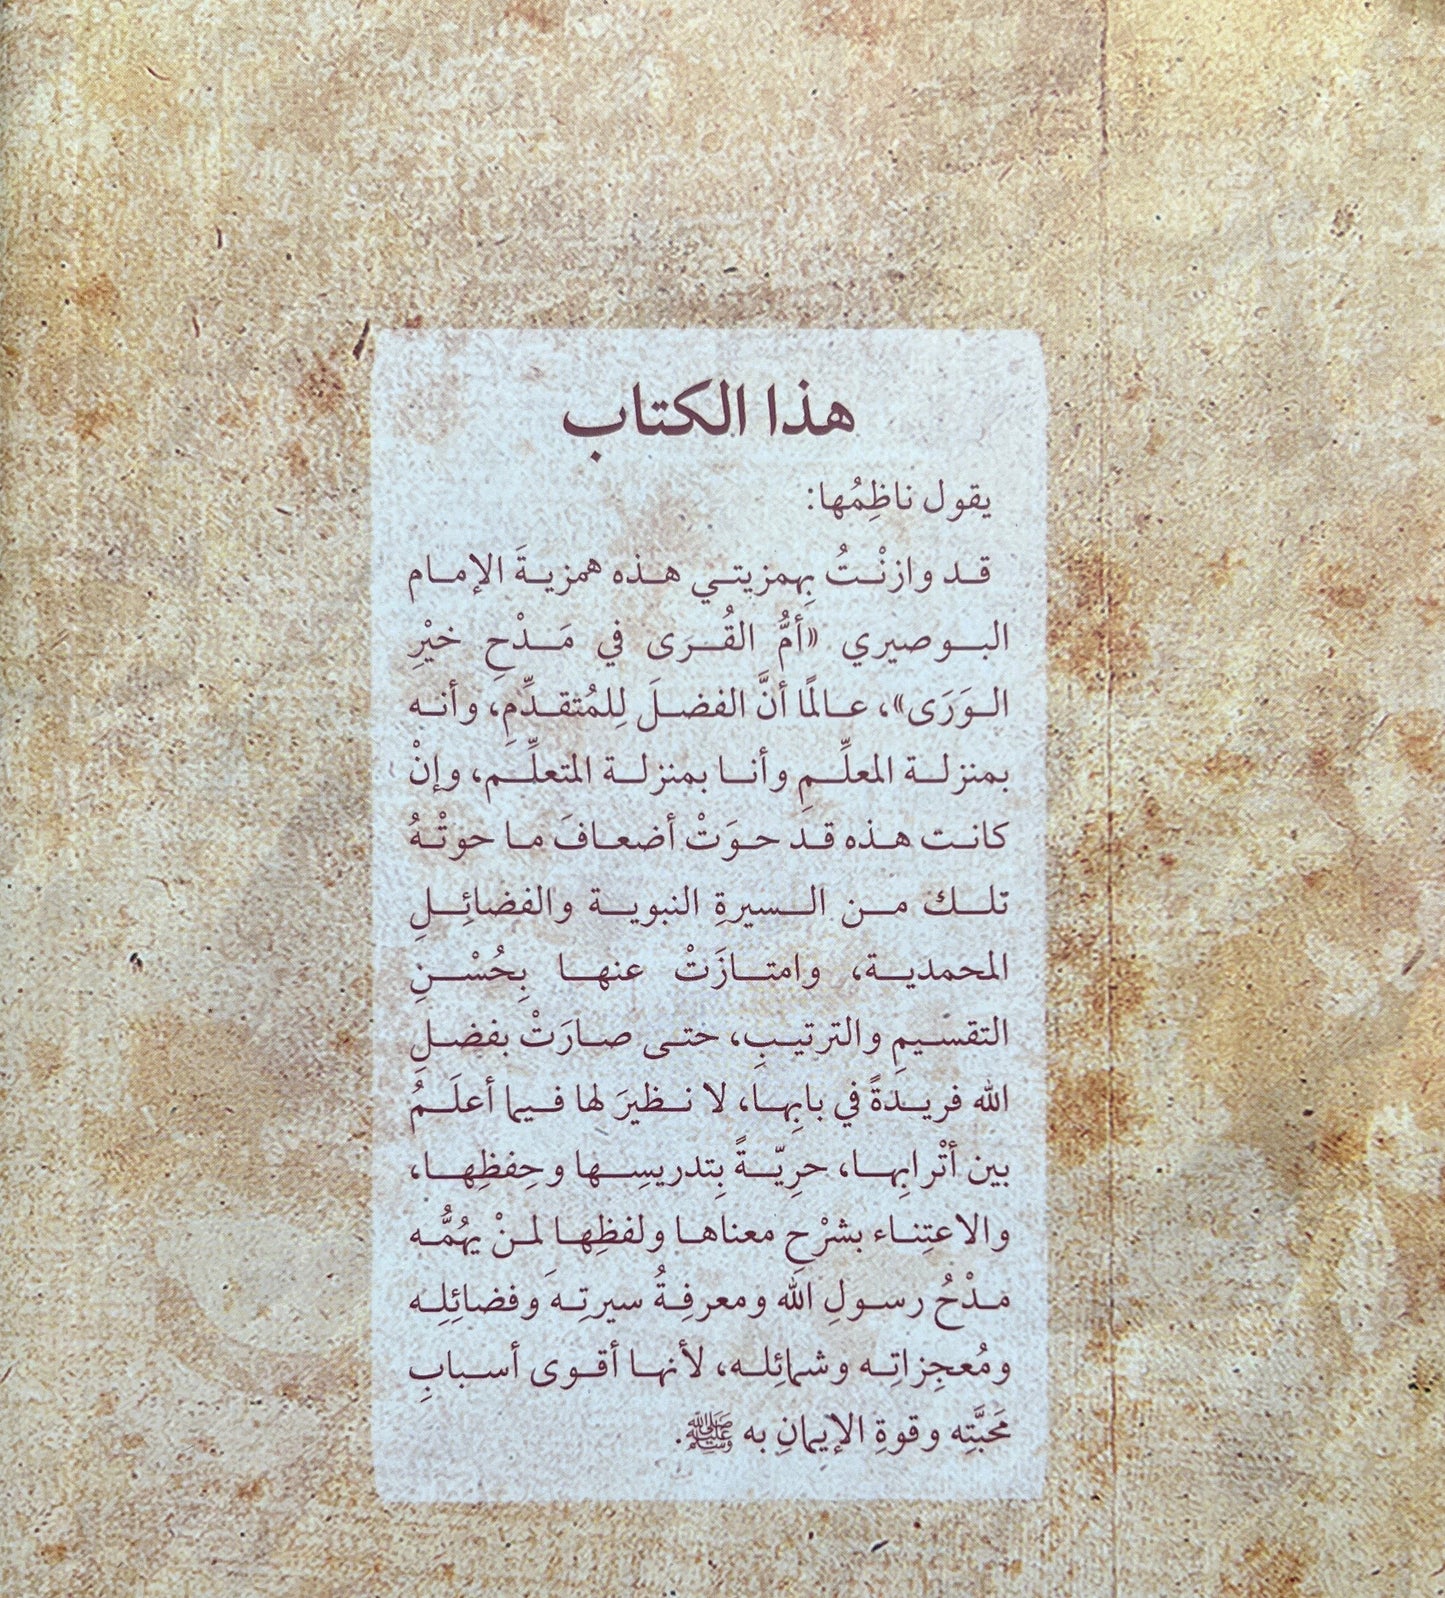 هذا الكتاب
يقول ناظِمُها:
قد وازنْتُ بِهمزيتي هذه همزيةَ الإمام
البوصيري «أمُّ القُرَى في مَدْحِ خيْرِ
الوَرَى»، عالمًا أنَّ الفضلَ لِلمُتقدِّمِ، وأنه
بمنزلة المعلِّمِ وأنا بمنزلة المتعلِّمِ، وإنْ
كانت هذه قد حوَتْ أضعافَ ما حوتْهُ
تلك من السيرةِ النبوية والفضائِلِ
المحمدية، وامتازَتْ عنها بِحُسْنِ
التقسيمِ والترتيبِ، حتى صارَتْ بفضلِ
الله فريدَةً في بابِها، لا نظيرَ لها فيما أعلَمُ
بين أتْرابِها، حرِيّةً بِتدريسِها وحِفظِها،
والاعتِناء بشرْحِ معناها ولفظِها لمنْ يهُمُّه
مدْحُ رسولِ الله ومعرفِةُ سيرتِهِ وفضائِلِه
ومُعجِزاتِه وشمائِله، لأنها أقوى أسبابِ
مَحبَّتِه وقوةِ الإيمانِ به ﷺ.